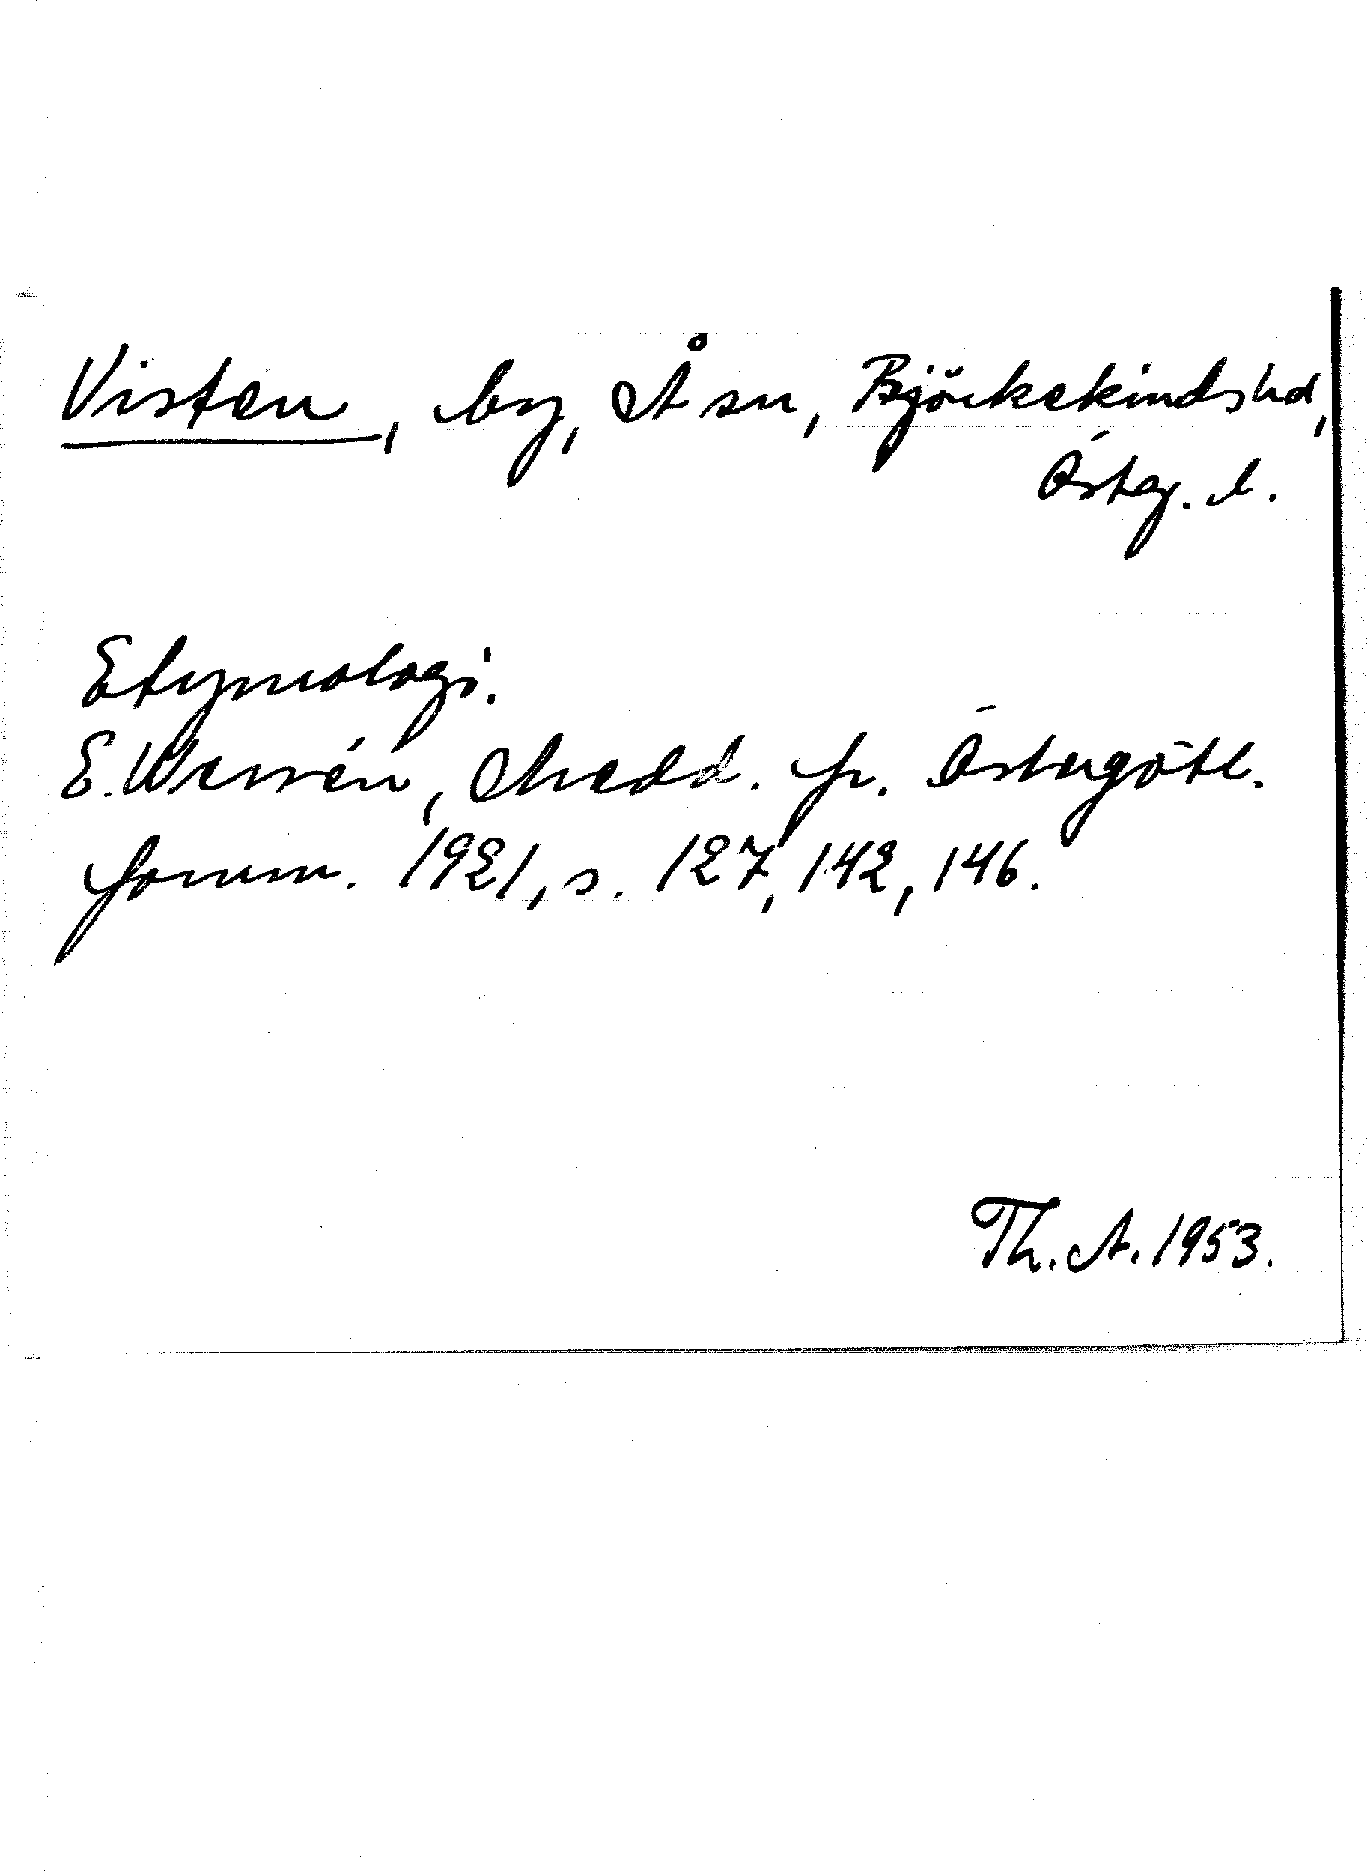 Visten, by, Å sn, Björkekinds hd,
Österg. l.
Etymologi.
E. Wessén, Medd. fr. Östergötl.
fornm. 1921, s. 127, 142, 146.
Th. A. 1953.